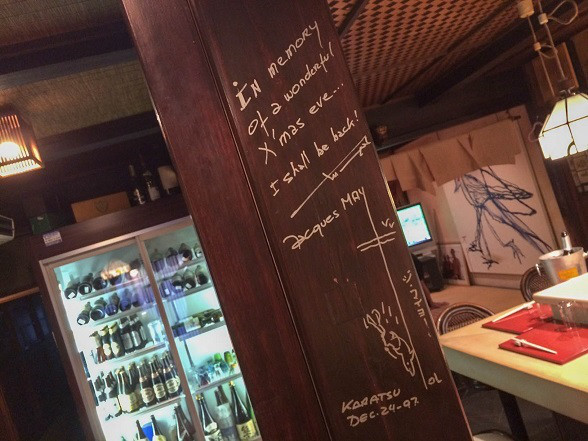 IN memory
of a wonderful
X'mas eve...
I shall be back!
Jacques MAY
KARATSU
DEC-24-97